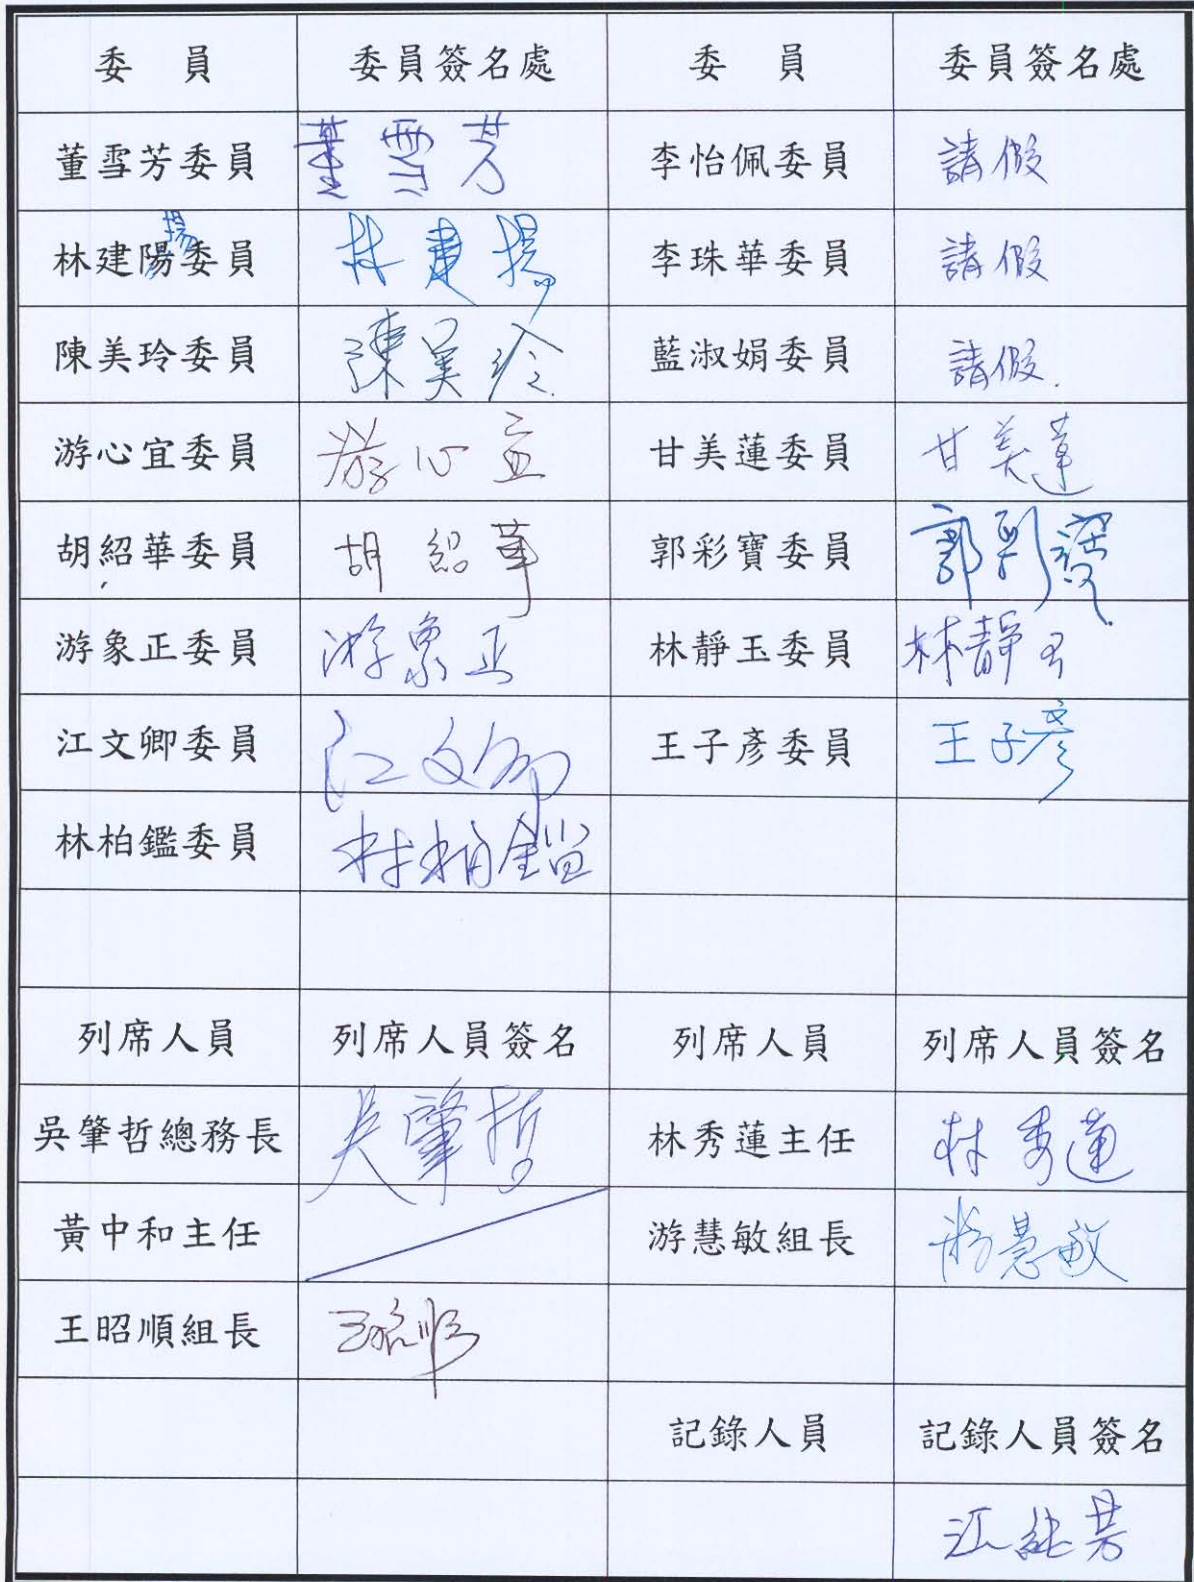 委 員 委員簽名處 委 員 委員簽名處
董雪芳委員 董雪芳 李怡佩委員 請假
揚
林建陽委員 林建揚 李珠華委員 請假
陳美玲委員 陳美玲 藍淑娟委員 請假.
游心宜委員 游心宜 甘美蓮委員 甘美蓮
胡紹華委員 胡紹華 郭彩寶委員 郭彩寶
游象正委員 游象正 林靜玉委員 林靜玉
江文卿委員 江文卿 王子彥委員 王子彥
林柏鑑委員 林柏鑑
列席人員 列席人員簽名 列席人員 列席人員簽名
吳肇哲總務長 吳肇哲 林秀蓮主任 林秀蓮
黃中和主任 游慧敏組長 游慧敏
王昭順組長 王昭順
記錄人員 記錄人員簽名
江純芳